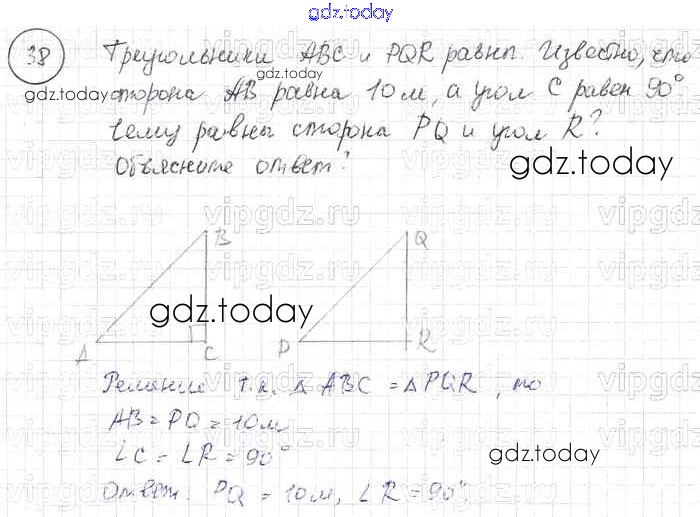 gdz.today
38 Треугольники ABC и PQR равны. Известно, что
gdz.today
gdz.today
сторона AB равна 10 м, а угол C равен 90°
Чему равны сторона PQ и угол R?
Объясните ответ?
gdz.today
vipgdz.ru vipgdz.ru vipgdz.ru
B Q
gdz.today
A C P R
Решение т.к. △ ABC = △ PQR, то
AB = PQ = 10 м
∠C = ∠R = 90°
gdz.today
Ответ: PQ = 10 м, ∠R = 90°